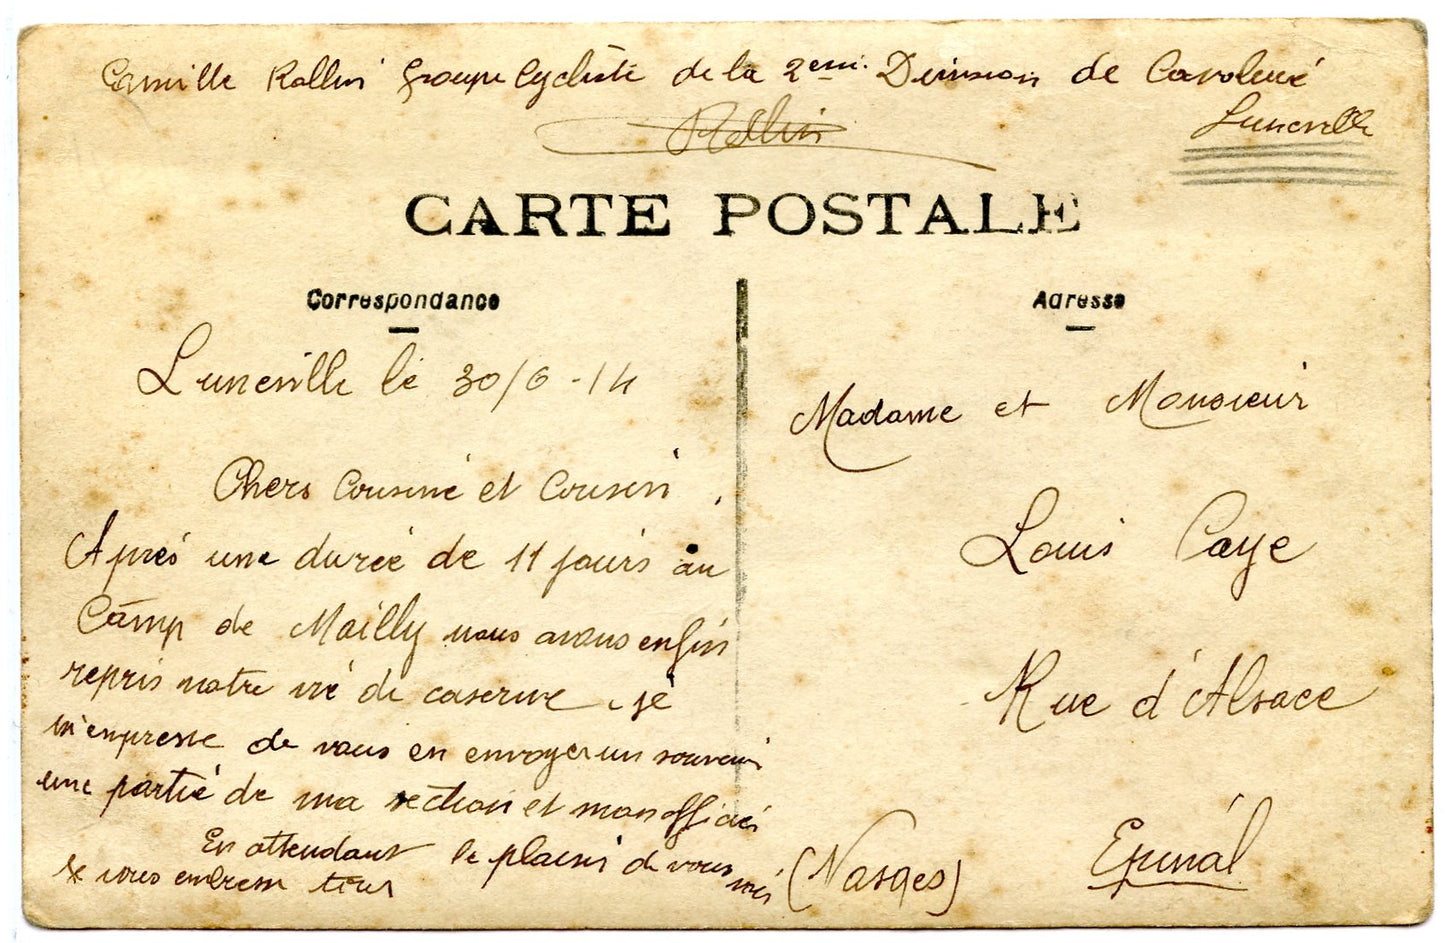 Camille Rollin Groupe Cycliste de la 2eme Division de Cavalerie
Luneville
Rollin
CARTE POSTALE
Correspondance
Adresse
Luneville le 30/6-14
Chers Cousine et Cousin,
Après une durée de 11 jours au
Camp de Mailly nous avons enfin
repris notre vie de caserne, je
m'empresse de vous en envoyer un souvenir
une partie de ma section et mon officier
En attendant le plaisir de vous voir
je vous embrasse tous
Madame et Monsieur
Louis Caye
Rue d'Alsace
Epinal
(Vosges)